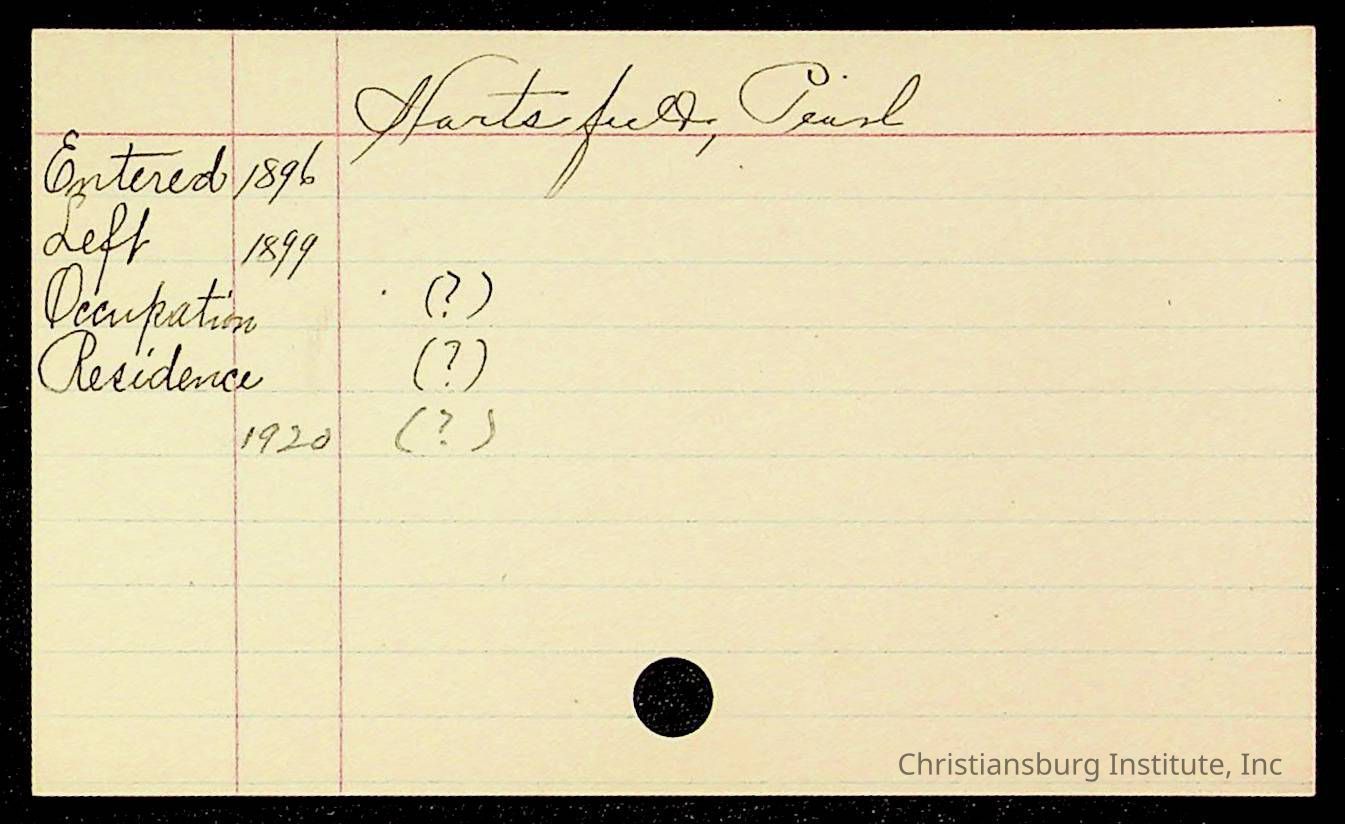 Hartsfield, Pearl
Entered 1896
Left 1899
Occupation (?)
Residence (?)
1920 (?)
Christiansburg Institute, Inc